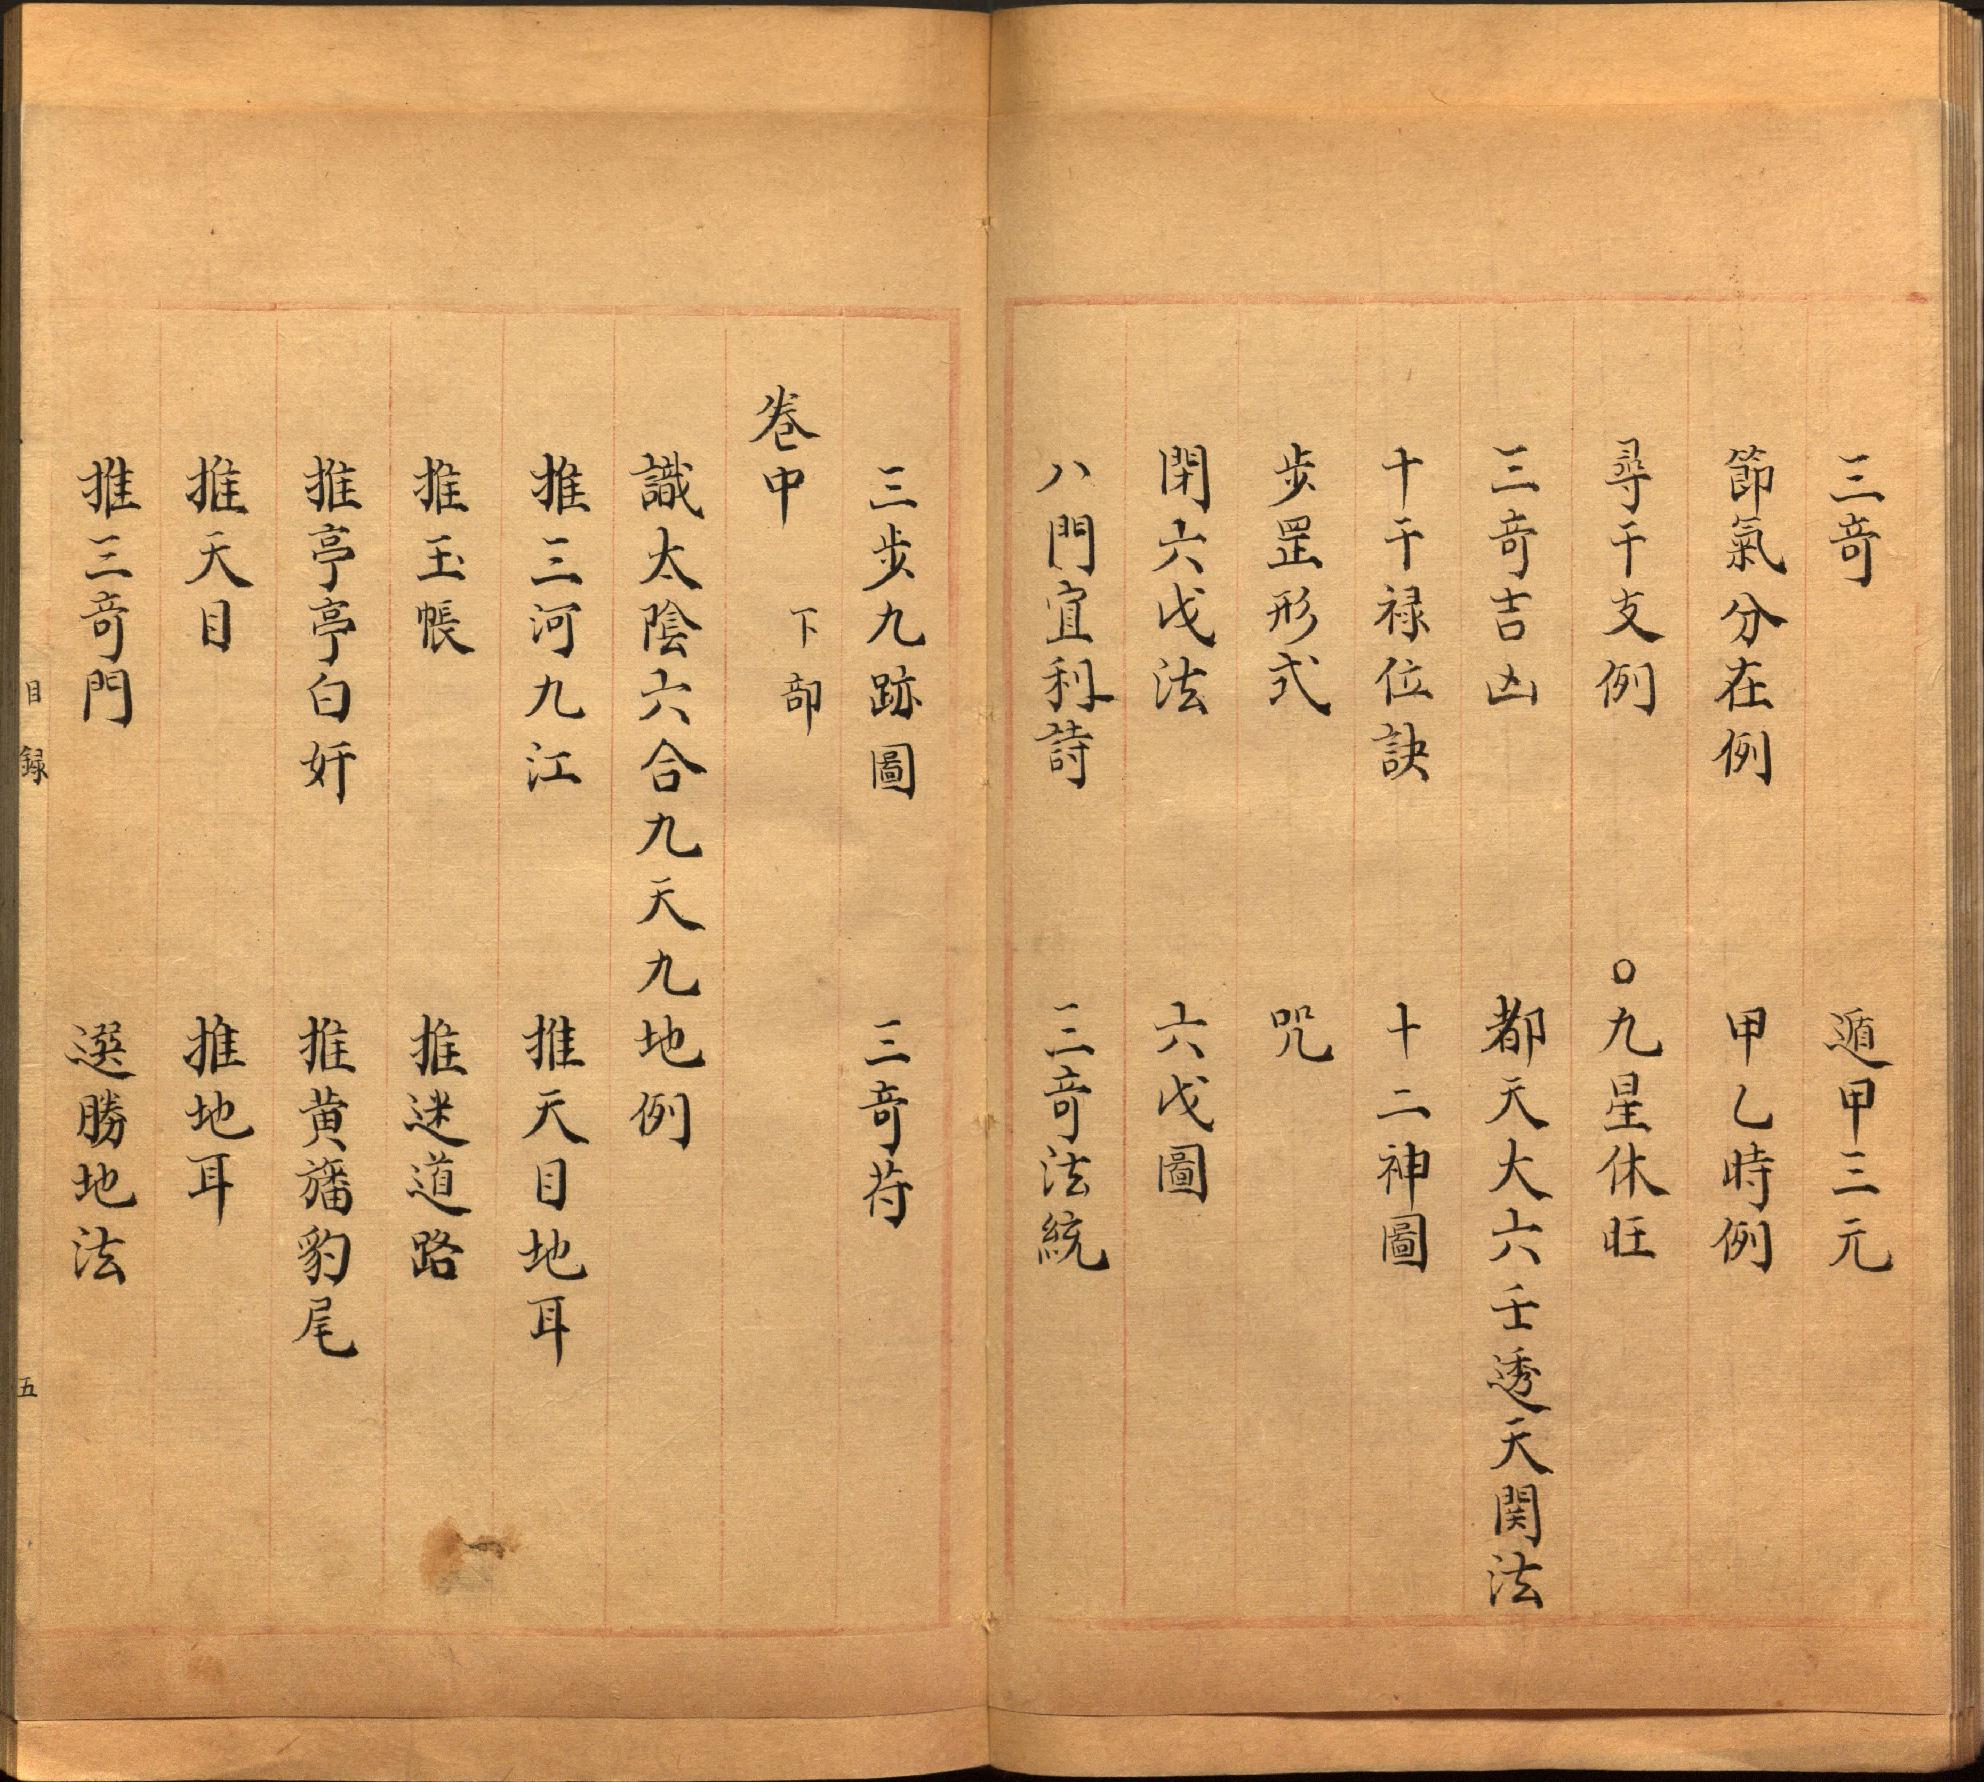 三竒　遁甲三元
節氣分在例　甲乙時例
尋干支例　○九星休旺
三竒吉凶　都天大六壬透天関法
十干禄位訣　十二神圖
步罡形式　咒
閉六戊法　六戊圖
八門宜利詩　三竒法統
三步九跡圖　三竒苻
卷中　下部
識太陰六合九天九地例
推三河九江　推天目地耳
推玉帳　推迷道路
推亭亭白奸　推黄旛豹尾
推天目　推地耳
推三竒門　選勝地法
目録　五